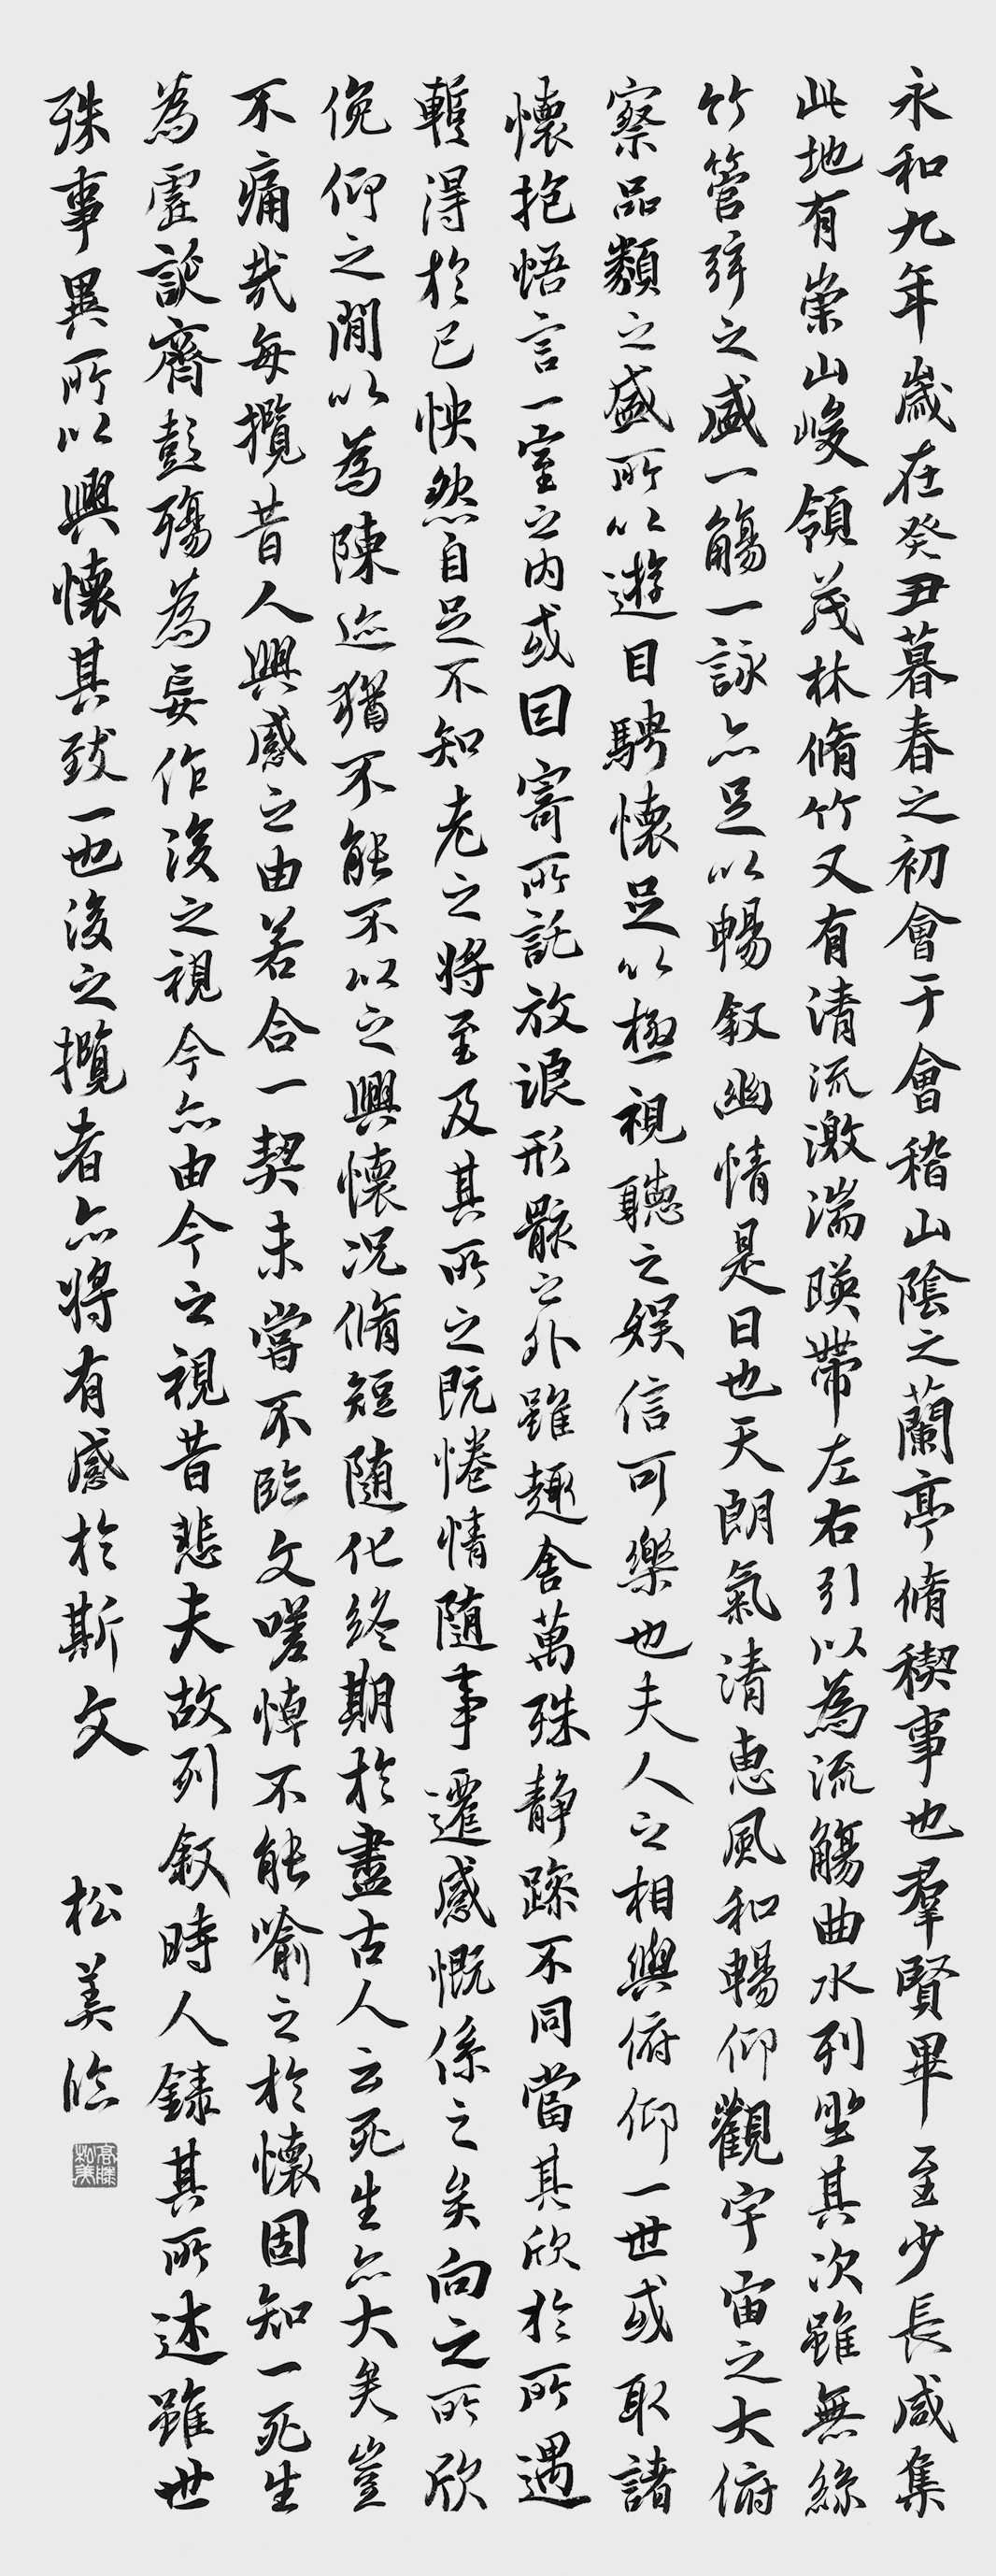 永和九年歲在癸丑暮春之初會于會稽山陰之蘭亭脩稧事也羣賢畢至少長咸集
此地有崇山峻領茂林脩竹又有清流激湍暎帶左右引以為流觴曲水列坐其次雖無絲
竹管弦之盛一觴一詠亦足以暢叙幽情是日也天朗氣清惠風和暢仰觀宇宙之大俯
察品類之盛所以遊目騁懷足以極視聽之娛信可樂也夫人之相與俯仰一世或取諸
懷抱悟言一室之内或曰寄所託放浪形骸之外雖趣舍萬殊静躁不同當其欣於所遇
暫得於己怏然自足不知老之將至及其所之既惓情隨事遷感慨係之矣向之所欣
俛仰之閒以為陳迹猶不能不以之興懷况脩短隨化終期於盡古人云死生亦大矣豈
不痛哉每攬昔人興感之由若合一契未嘗不臨文嗟悼不能喻之於懷固知一死生
為虛誕齊彭殤為妄作後之視今亦由今之視昔悲夫故列叙時人録其所述雖世
殊事異所以興懷其致一也後之攬者亦將有感於斯文
松美臨